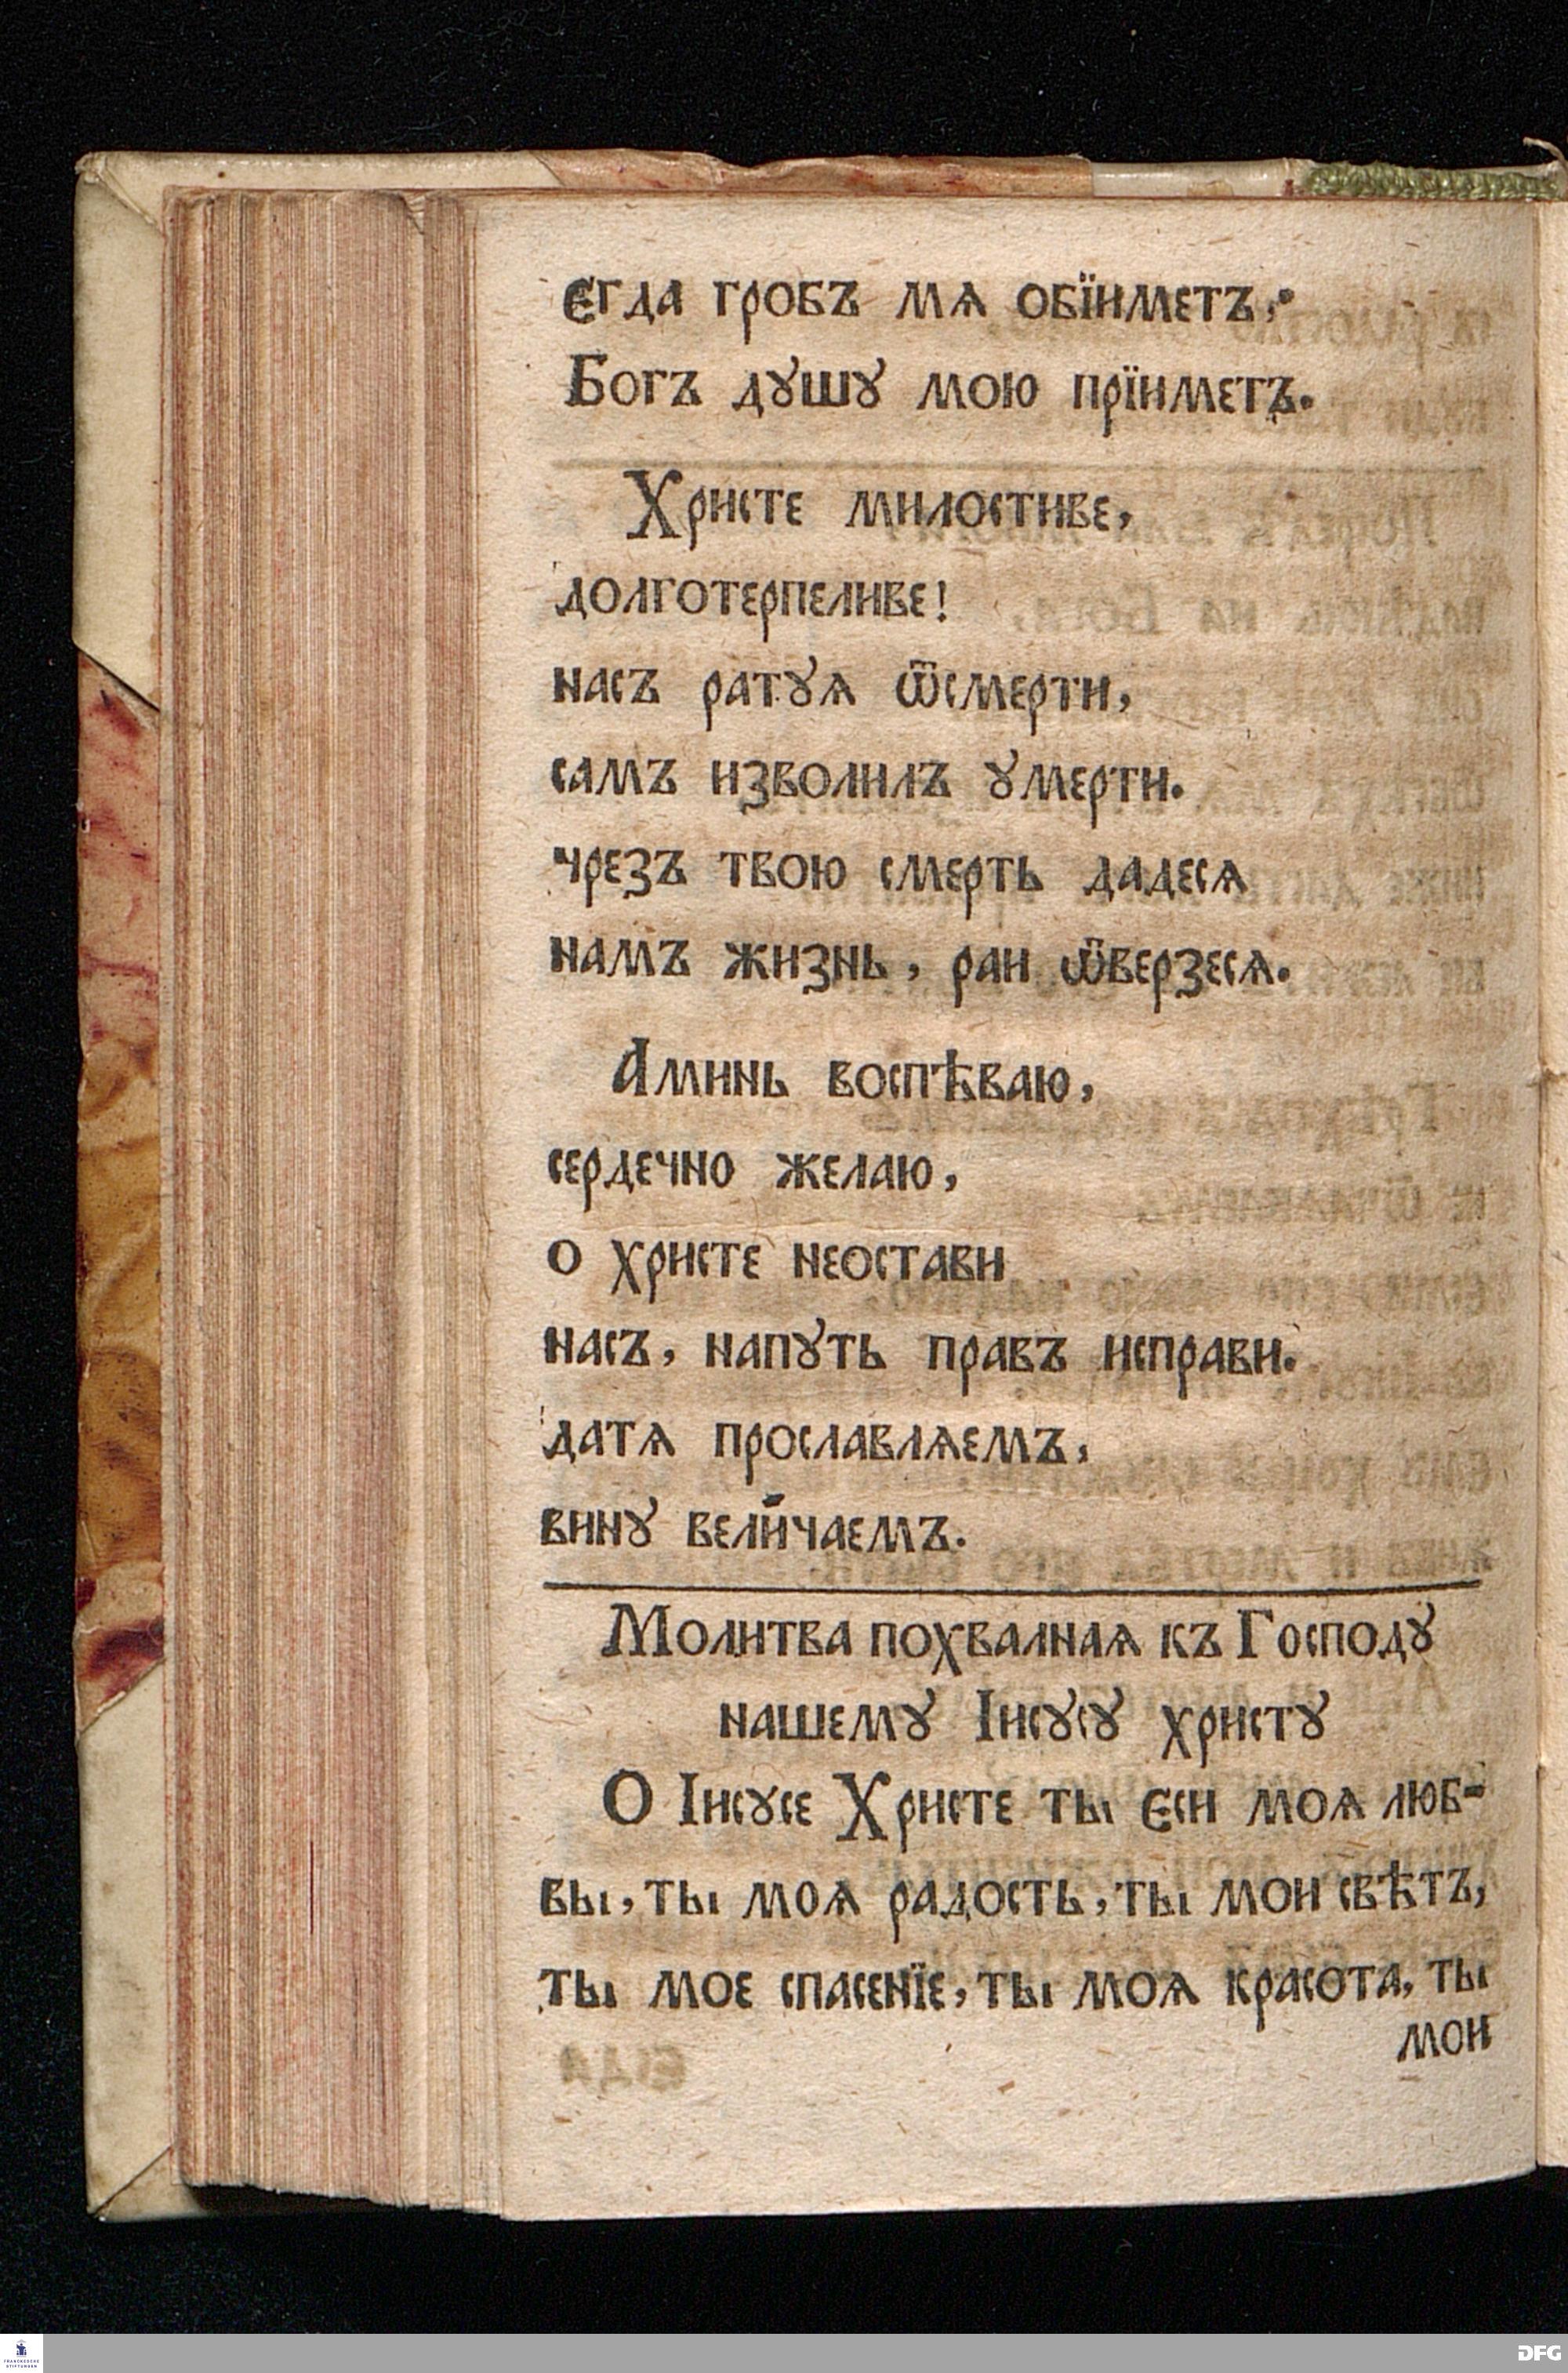 єгда гробъ мѧ обїиметъ,•
Богъ дꙋшꙋ мою прїиметъ.
Христе милостиве,
долготерпеливе!
насъ ратꙋѧ ѿсмерти,
самъ изволилъ ꙋмерти.
чрезъ твою смерть дадесѧ
намъ жизнь, раи ѿверзесѧ.
Аминь воспѣваю,
сердечно желаю,
о христе неостави
насъ, напꙋть правъ исправи.
датѧ прославлѧемъ,
винꙋ величаемъ.
Молитва похвалнаѧ къ Господꙋ
нашемꙋ Іисꙋсꙋ христꙋ
О Іисꙋсе Христе ты єси моѧ люб-
вы, ты моѧ радость, ты мои свѣтъ,
ты мое спасенїе, ты моѧ красота, ты
мои
FRANCKESCHE
STIFTUNGEN
DFG